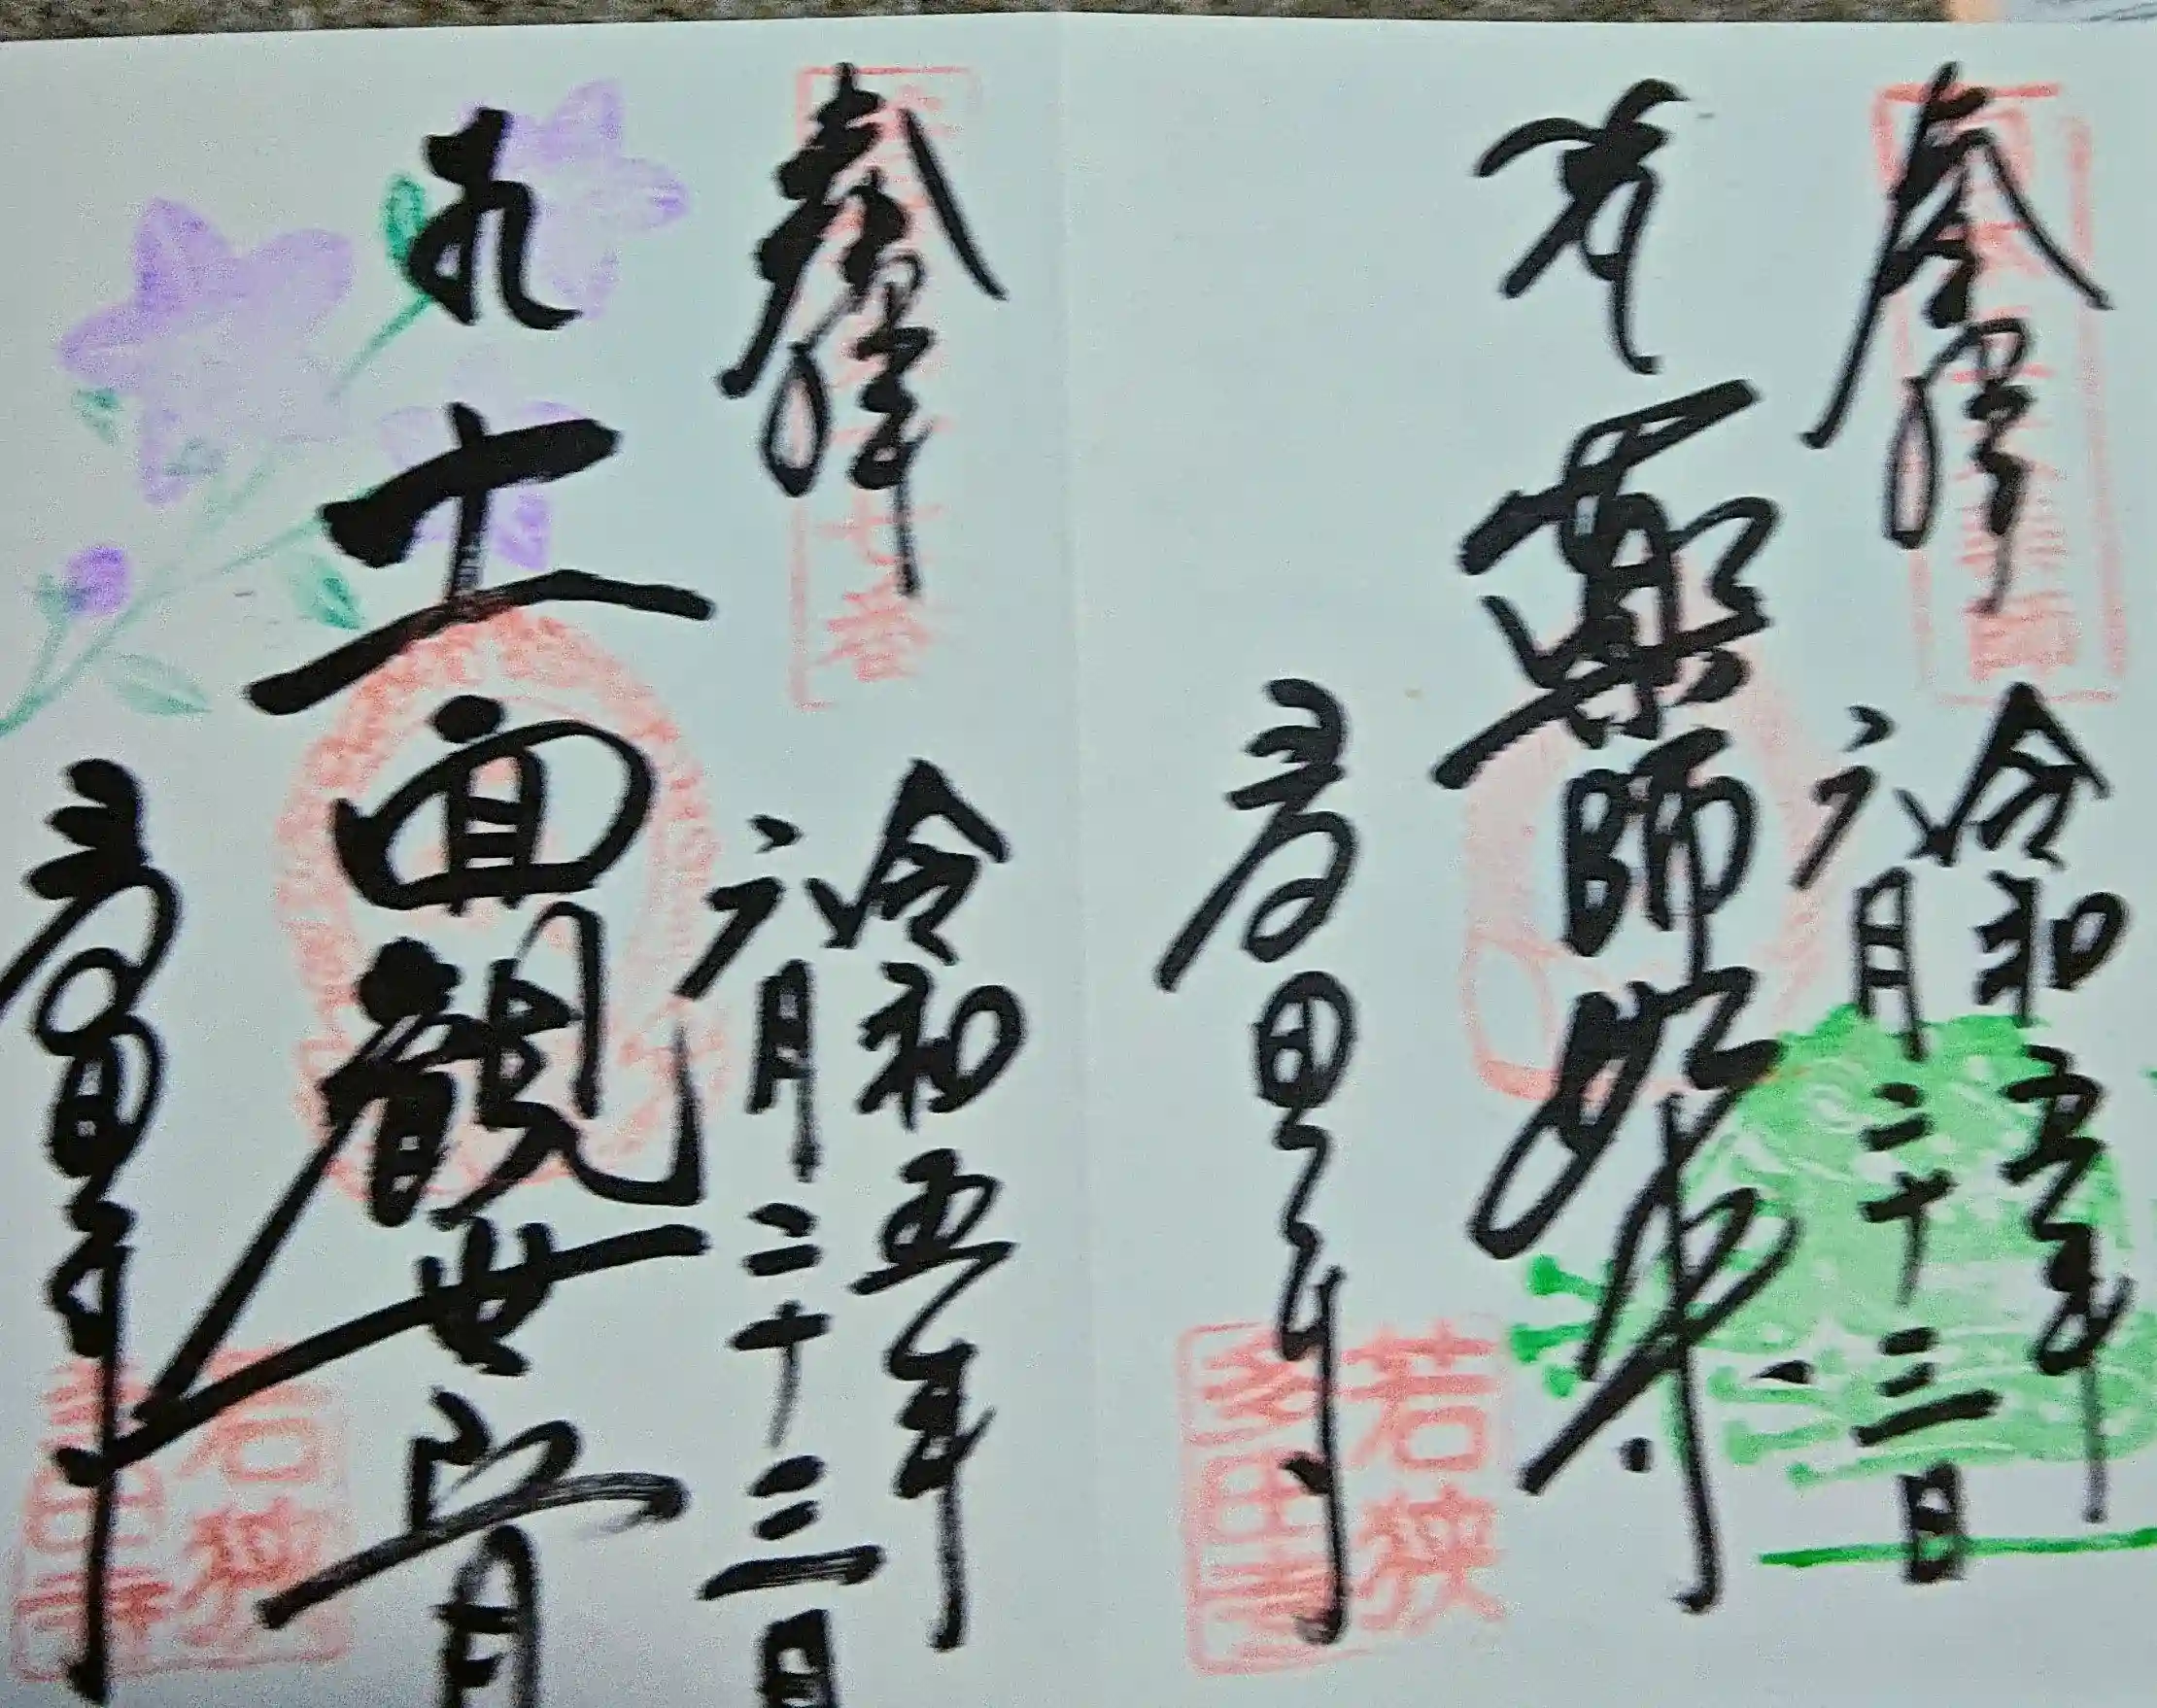 奉拝
令和五年
六月二十三日
薬師如来
多田寺
若狭
多田寺
奉拝
令和五年
六月二十三日
十一面観世音
多田寺
若狭
多田寺